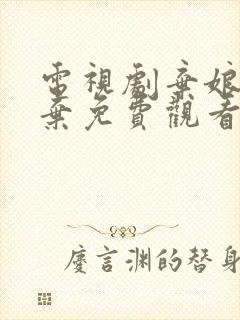 電視劇棄娘
棄免費觀看
慶言淵的替身